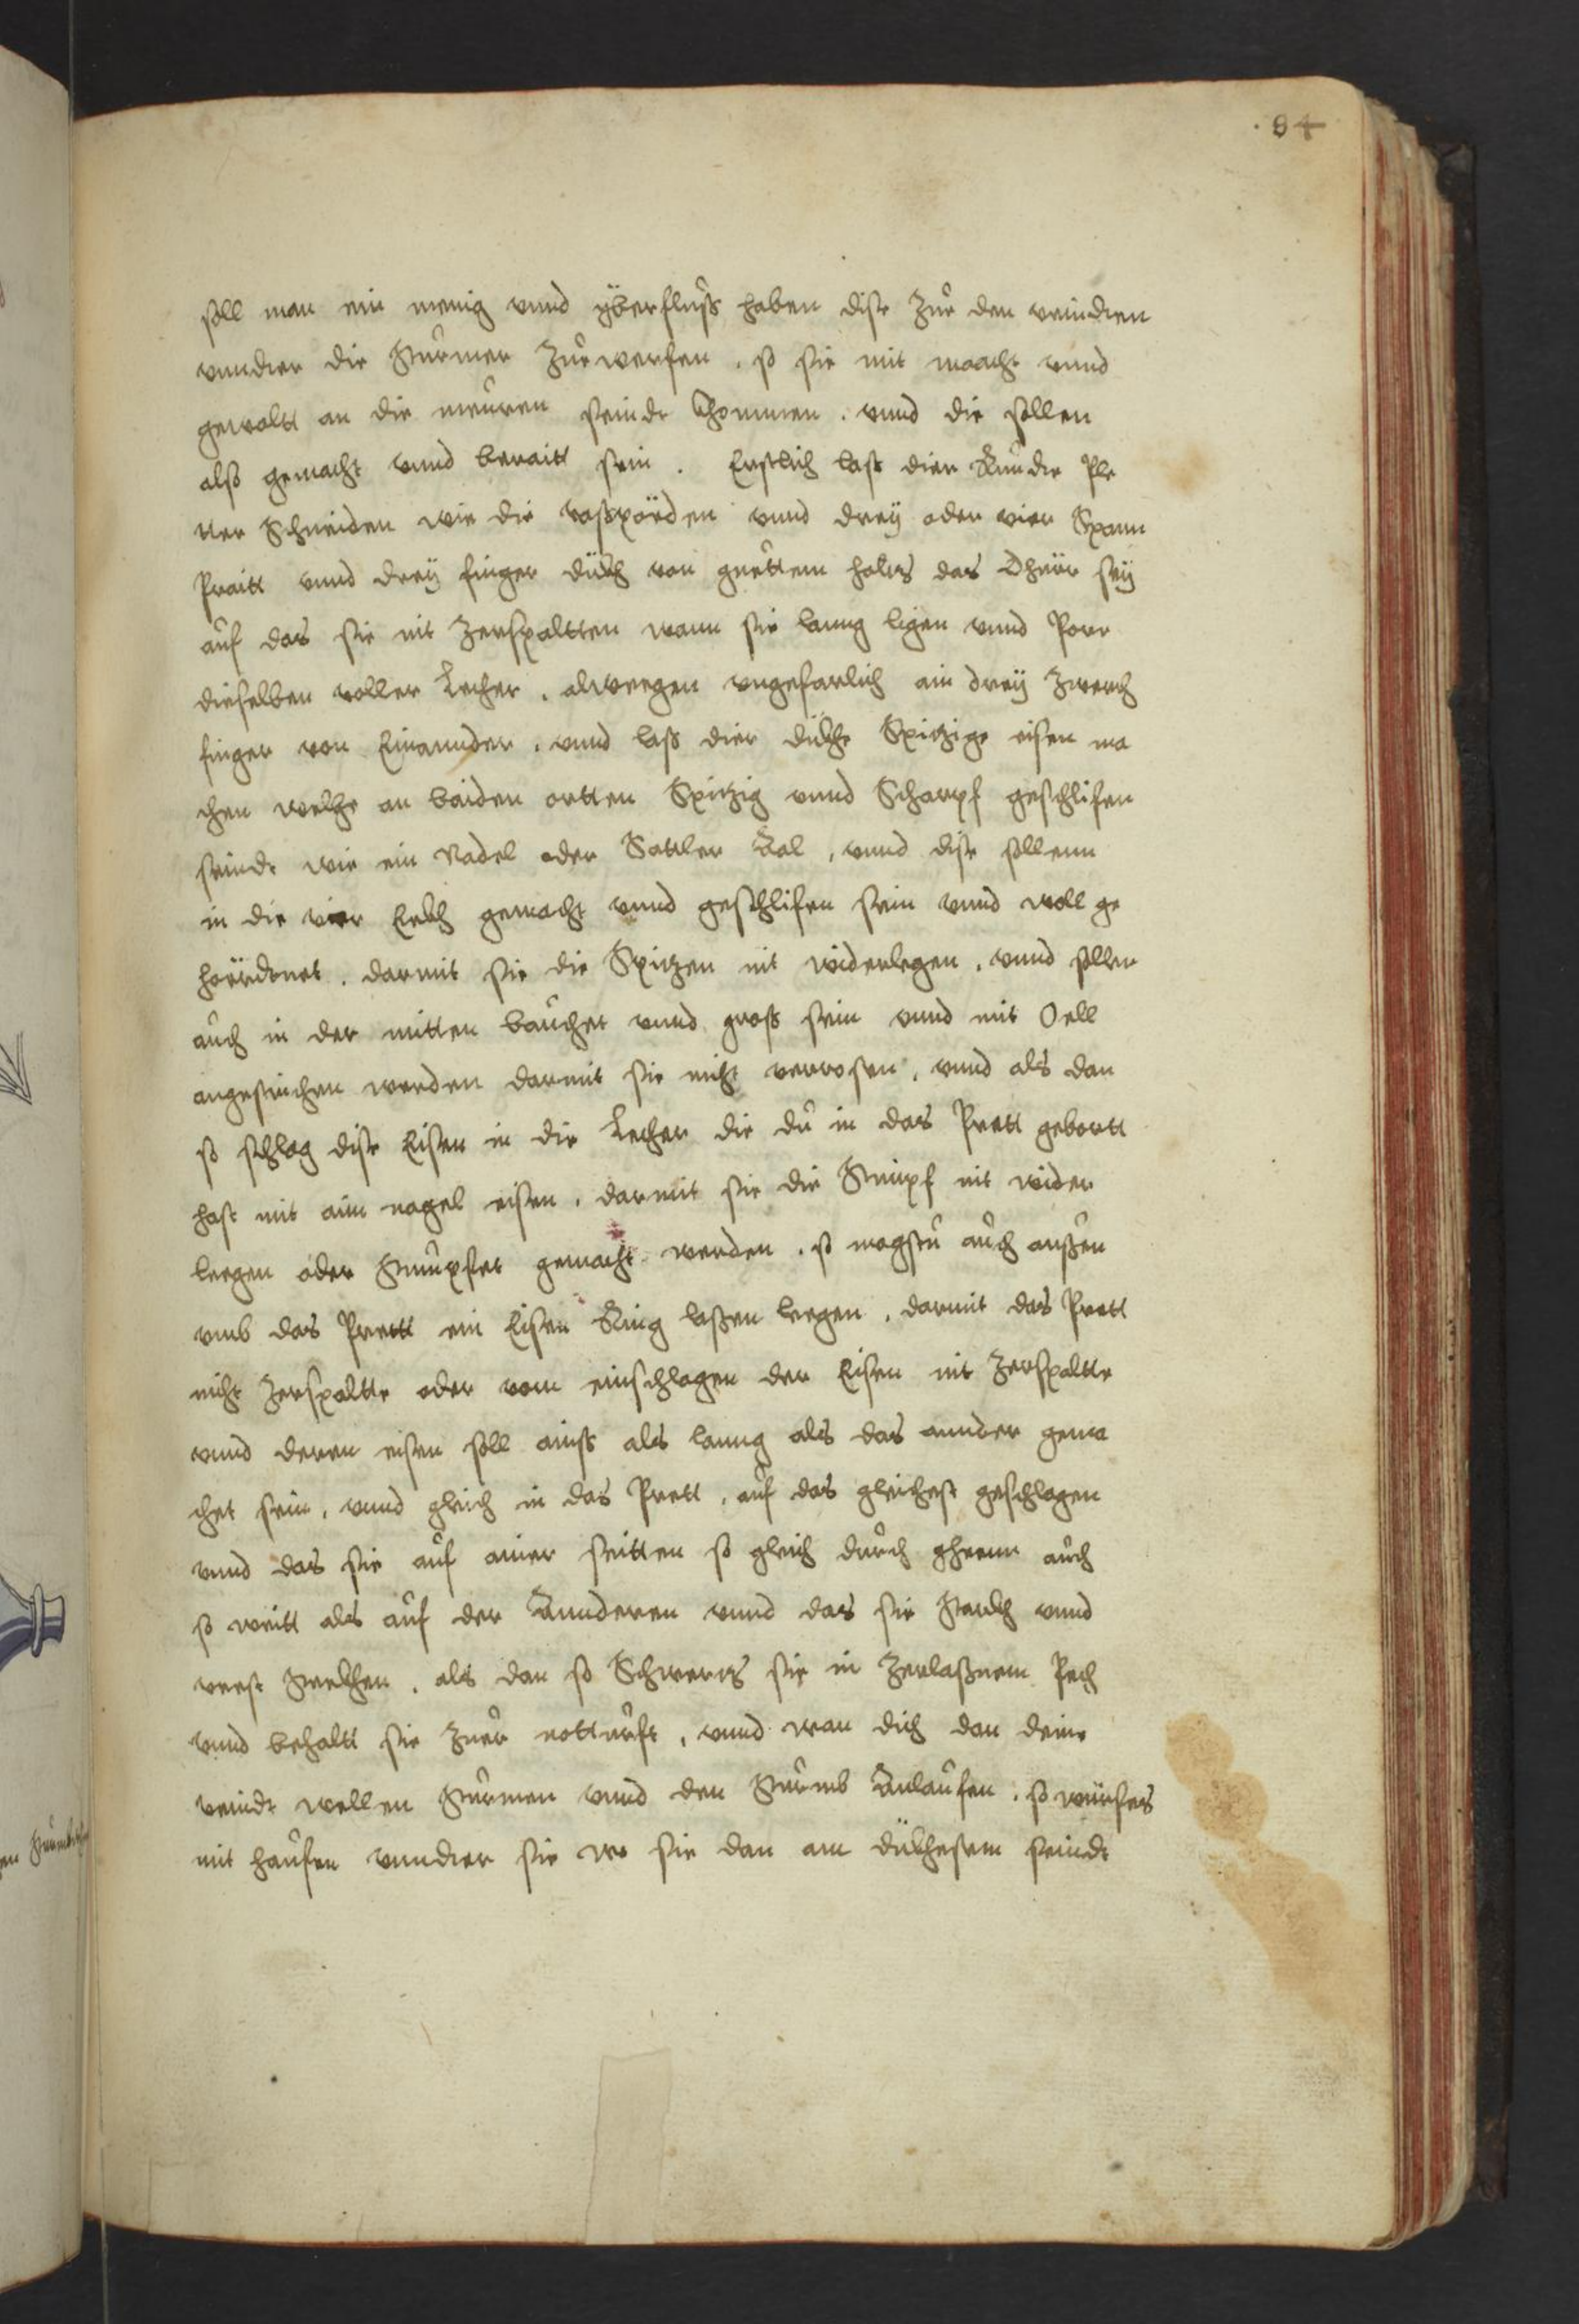 84
soll man ein menig vnnd yberfluß haben dise zur den veindten
vnndter die Sturmer zurwerfen . so sie mit macht vnnd
gewaltt an die meuren seindt khommen . vnnd die sollen
alß gemacht vnnd beraitt sein . Erstlich lass dier Runde Ple
tter Schneiden wie die vaßpörden vnnd dreÿ oder vier Spann
Praitt vnnd dreÿ finger dückh von guettem holtz das dhürr seÿ
auf das sie nit zerspaltten wann sie lanng ligen vnnd Porr
dieselben voller Lecher . alweegen vngefarlich ain dreÿ zwerch
finger von Einannder . vnnd laß dier dückhe Spitzige eisen ma
chen welche an baiden ortten Spitzig vnnd Scharpf geschlifen
seindt wie ein Nadel oder Sattler Aal , vnnd dise sollenn
in die vier Eckh gemacht vnnd geschlifen sein vnnd woll ge
hörrdtnet . darmit sie die Spitzen nit widerlegen . vnnd sollen
auch in der mitten bauchet vnnd gross sein vnnd mit Oell
angestrichen werden darmit sie nicht verrosten , vnnd als dan
so schlag dise Eisen in die Lecher die du in das Prett gebortt
hast mit aim nagel eisen , darmit sie die Stumpf nit wider
leegen oder Stumpfet gemacht werden . so magstu auch aussen
vmb das Prettt ein Eisen Ring lassen leegen , darmit das Prett
nicht zerspaltte oder vom einschlagen der Eisen nit zerspaltte
vnnd deren eisen soll ainss als lanng als das annder gema
chet sein , vnnd gleich in das Prett , auf das gleichest geschlagen
vnnd das sie auf ainer seitten so gleich durch gheenn auch
so weitt als auf der Annderen vnnd das sie starckh vnnd
veest steckhen , als dan so Schwertz sie in zerlassnem Pech
vnnd behaltt sie zuer notturft , vnnd wan dich dan deine
veindt wellen Sturmen vnnd den Sturmb Anlaufen , so würfes
mit haufen vnndter sie wo sie dan am dückhesten seindt